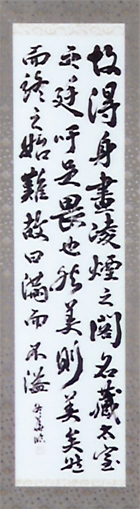 故得身畫凌煙之閣名藏太室
之廷吁足畏也然美則美矣然
而終之始難故曰滿而不溢